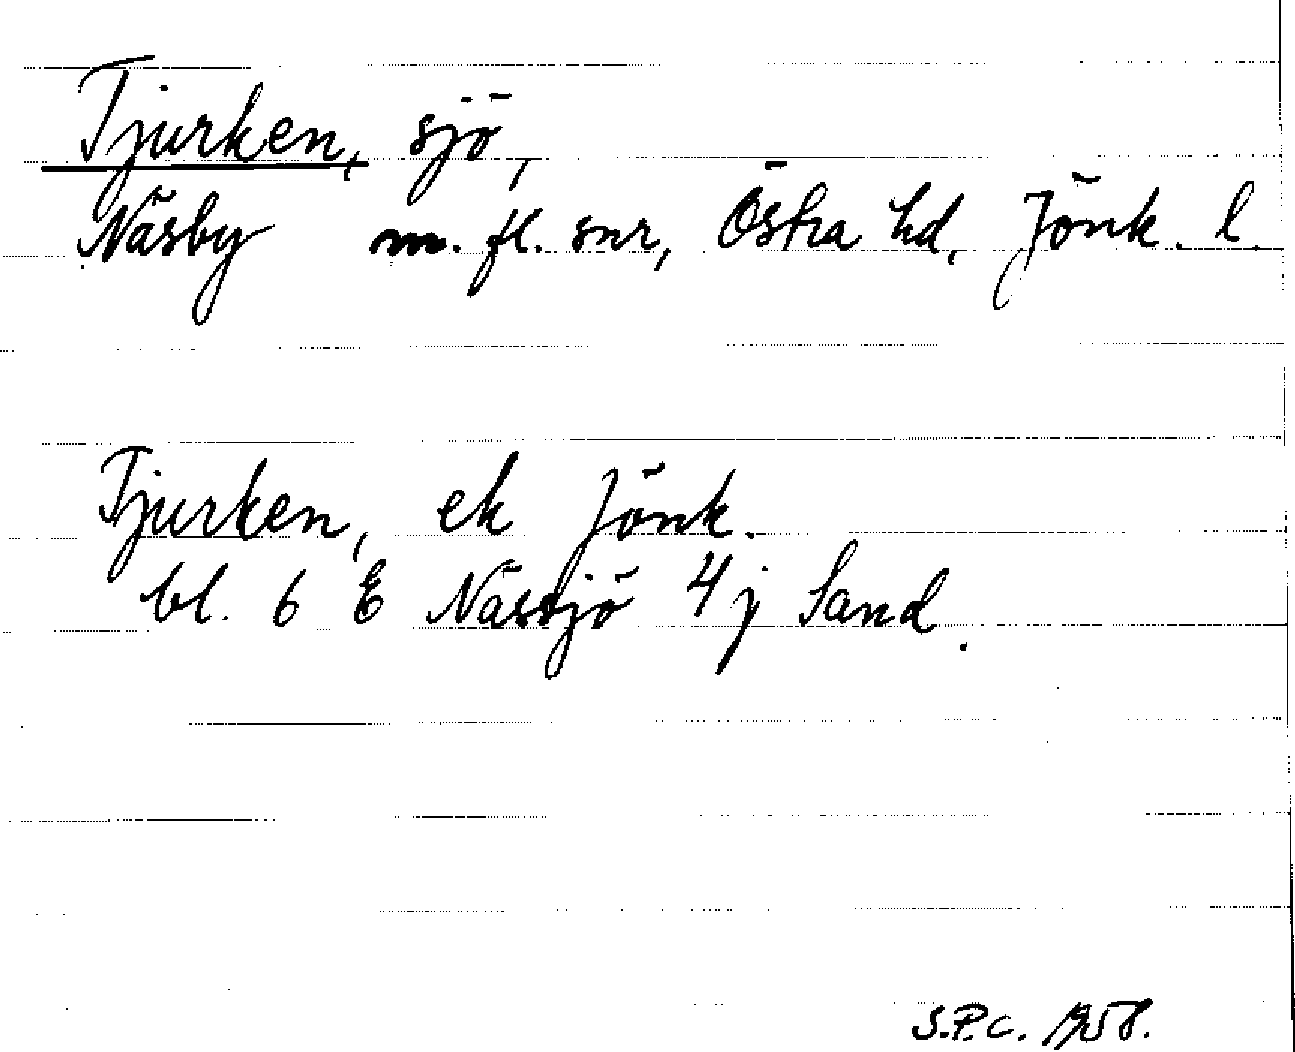 Tjurken, sjö,
Näsby m. fl. snr, Östra hd, Jönk. l.
Tjurken, ek Jönk.
bl. 6 E Nässjö 4 j Sand.
S.P.C. 1958.